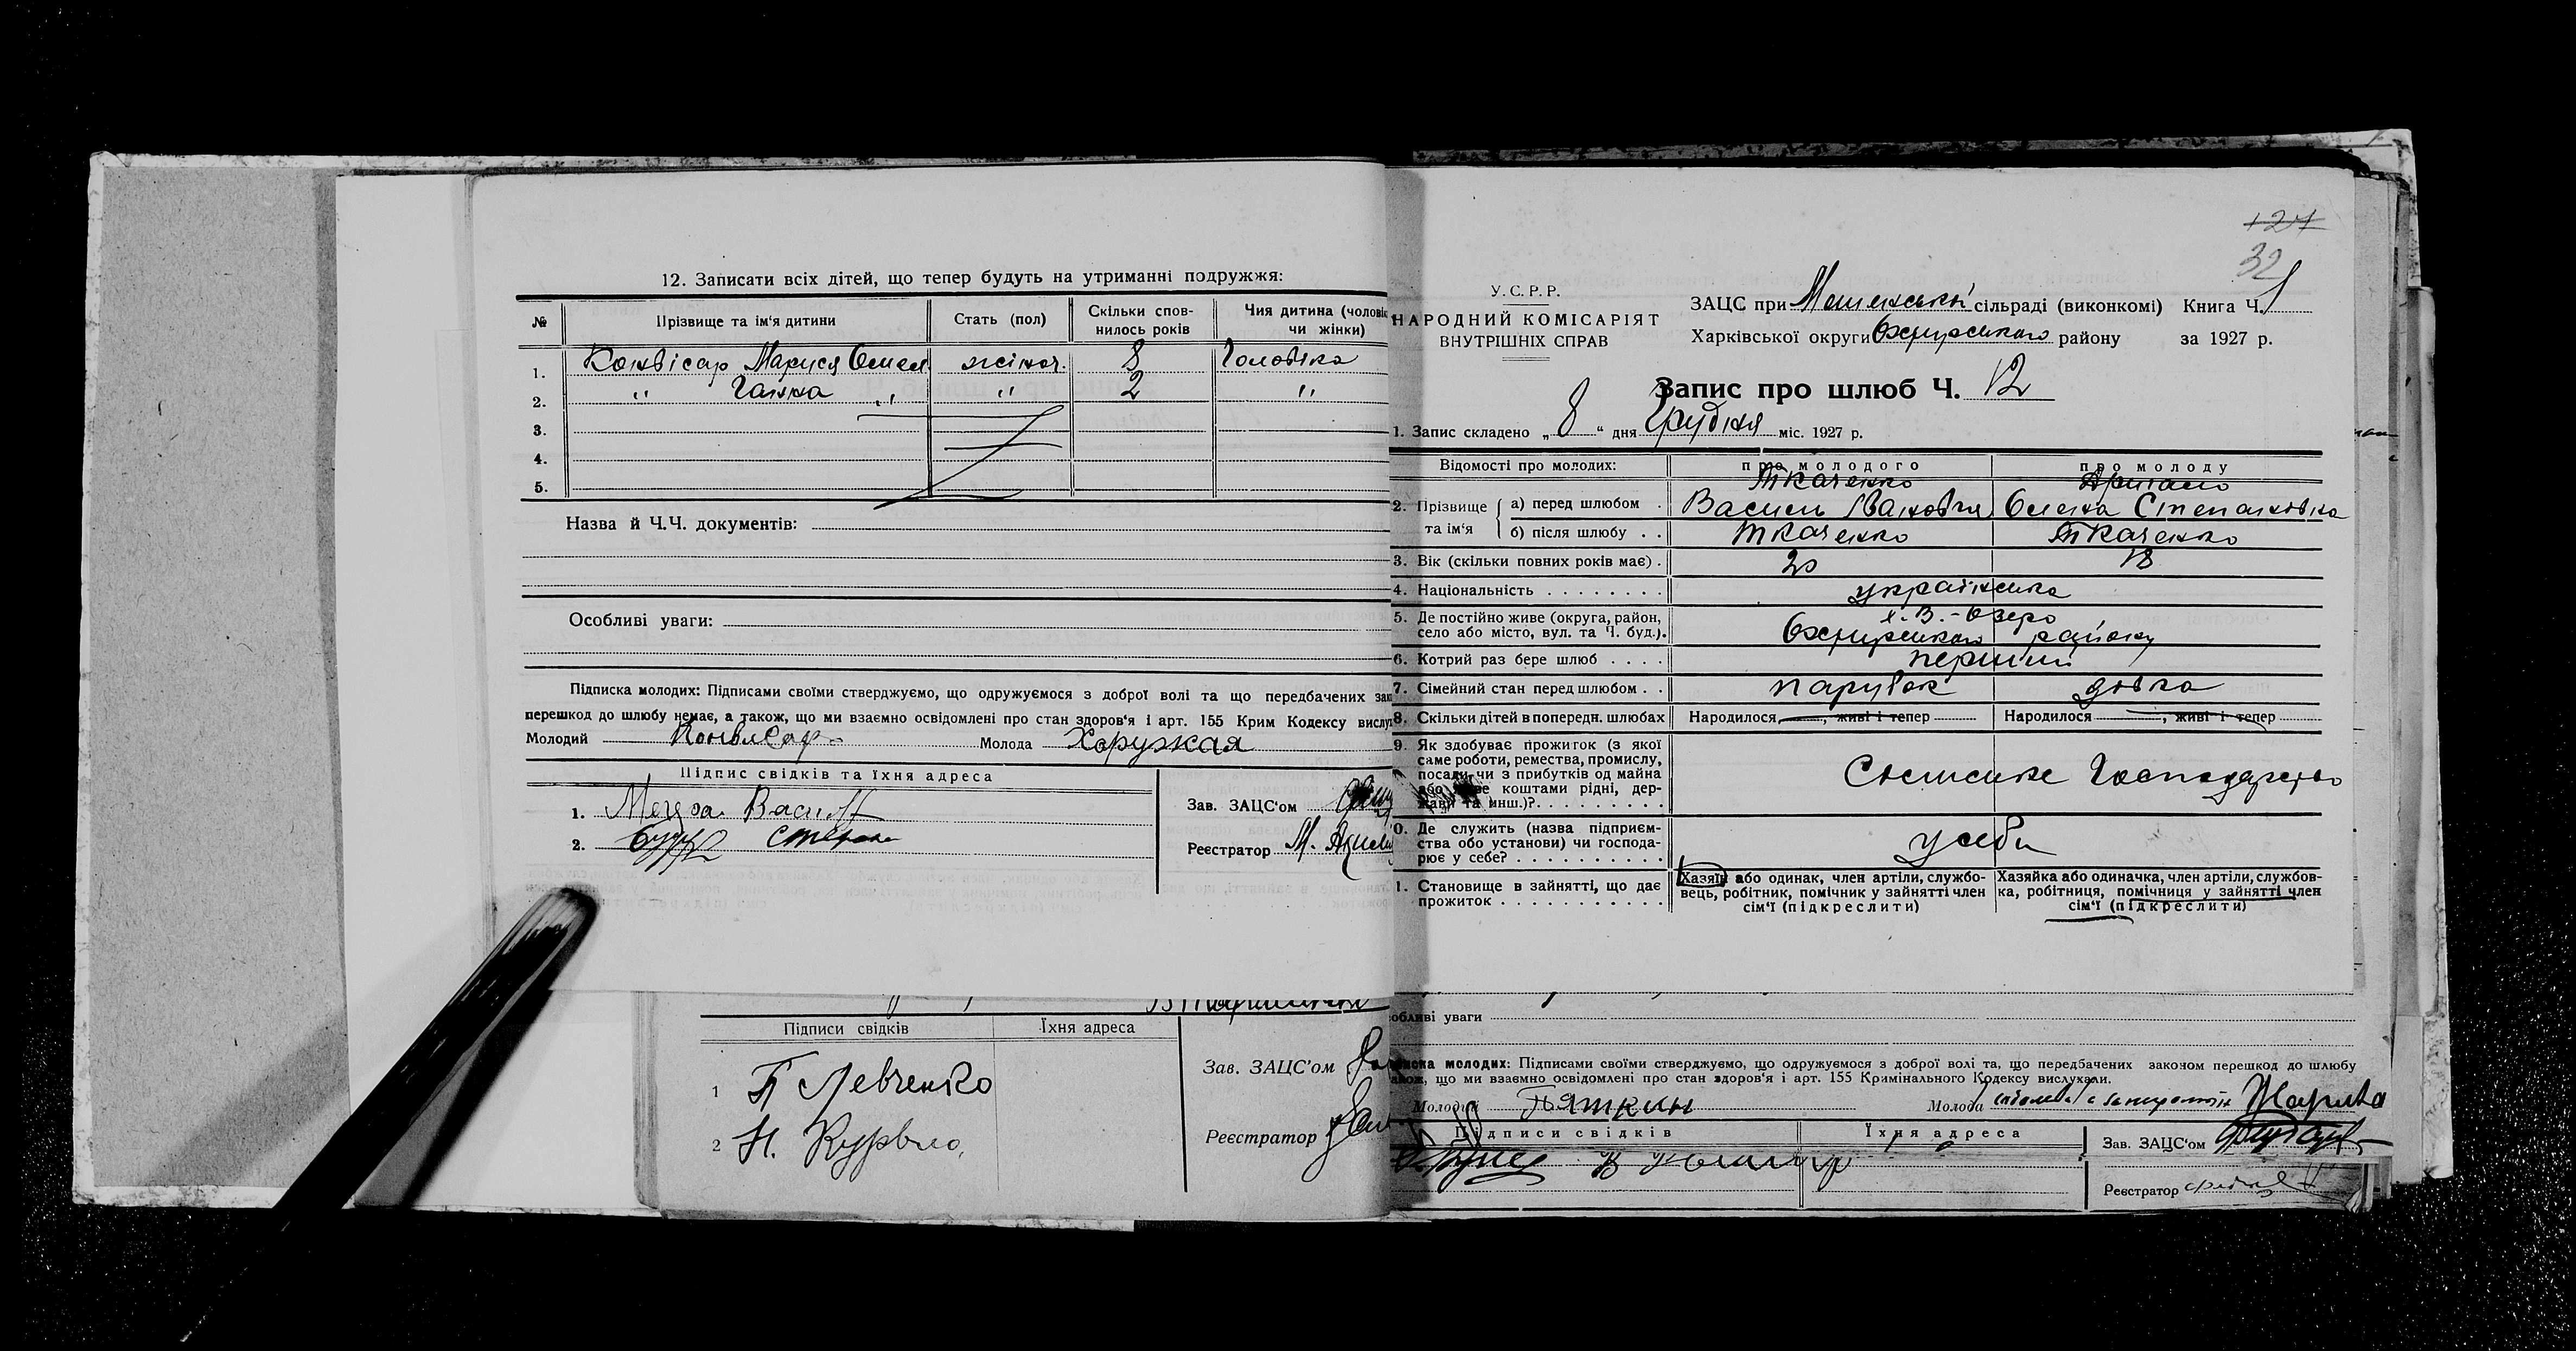 12. Записати всіх дітей, що тепер будуть на утриманні подружжя:
№ Прізвище та ім'я дитини Стать (пол) Скільки спов-нилось років Чия дитина (чоловік чи жінки)
1. Конвісар Маруся Омел. жіноч. 8 Чоловіка
2. " Ганна " " 2 "
3.
4.
5.
Назва й Ч.Ч. документів:
Особливі уваги:
Підписка молодих: Підписами своїми стверджуємо, що одружуємося з доброї волі та що передбачених зак
перешкод до шлюбу немає, а також, що ми взаємно освідомлені про стан здоров'я і арт. 155 Крим Кодексу вислу
Молодий Конвисар Молода Хоружая
Підпис свідків та їхня адреса
1. Василь
2. Степан
Зав. ЗАЦС'ом
Реєстратор М.
Підписи свідків Їхня адреса
1 П Левченко
2 Н.
Зав. ЗАЦС'ом
Реєстратор
127
32
У.С.Р.Р.
НАРОДНИЙ КОМІСАРІЯТ
ВНУТРІШНІХ СПРАВ
ЗАЦС при сільраді (виконкомі) Книга Ч. 1
Харківської округи Охтирського району за 1927 р.
Запис про шлюб Ч. 12
1. Запис складено „ 8 " дня Грудня міс. 1927 р.
Відомості про молодих: про молодого про молоду
2. Прізвище та ім'я
а) перед шлюбом . Ткаченко Василь Іванович Олена Степановна
б) після шлюбу . . Ткаченко Ткаченко
3. Вік (скільки повних років має) . 20 18
4. Національність . . . . . . . . українська
5. Де постійно живе (округа, район, село або місто, вул. та Ч. буд.). х. В.-Озеро
Охтирського району
6. Котрий раз бере шлюб . . . . перший
7. Сімейний стан перед шлюбом . . парубок дівка
8. Скільки дітей в попередн. шлюбах Народилося , живі і тепер Народилося , живі і тепер
9. Як здобуває прожиток (з якої
саме роботи, ремества, промислу,
посади чи з прибутків од майна
або живе коштами рідні, дер-
жави та инш.)?. . . . . . . . . Сільське Господарство
0. Де служить (назва підприєм-
ства або установи) чи господа-
рює у себе? . . . . . . . . . . у себе
1. Становище в зайнятті, що дає
прожиток . . . . . . . . . . . .
Хазяїн або одинак, член артіли, службо-
вець, робітник, помічник у зайнятті член
сім'ї (підкреслити)
Хазяйка або одиначка, член артіли, службов-
ка, робітниця, помічниця у зайнятті член
сім'ї (підкреслити)
обливі уваги
писка молодих: Підписами своїми стверджуємо, що одружуємося з доброї волі та, що передбачених законом перешкод до шлюбу
акож, що ми взаємно освідомлені про стан здоров'я і арт. 155 Кримінального Кодексу вислухали.
Молодий Пяткин Молода
Підписи свідків Їхня адреса
Зав. ЗАЦС'ом
Реєстратор